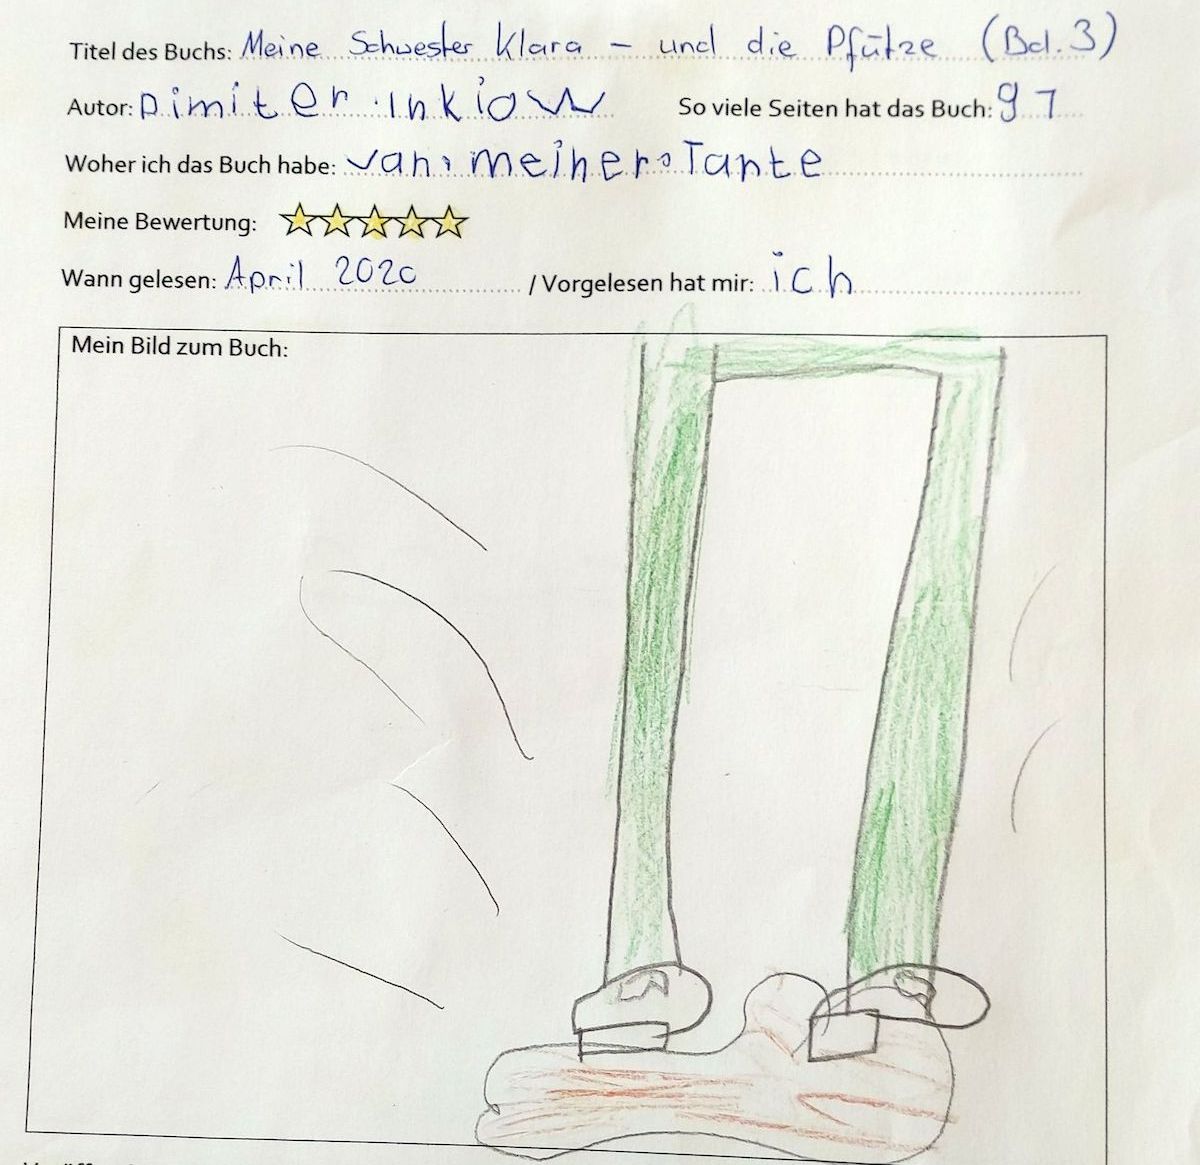 Titel des Buchs: Meine Schwester Klara – und die Pfütze (Bd. 3)
Autor: Dimiter Inkiow So viele Seiten hat das Buch: 91
Woher ich das Buch habe: van meiner Tante
Meine Bewertung:
Wann gelesen: April 2020 / Vorgelesen hat mir: ich
Mein Bild zum Buch: